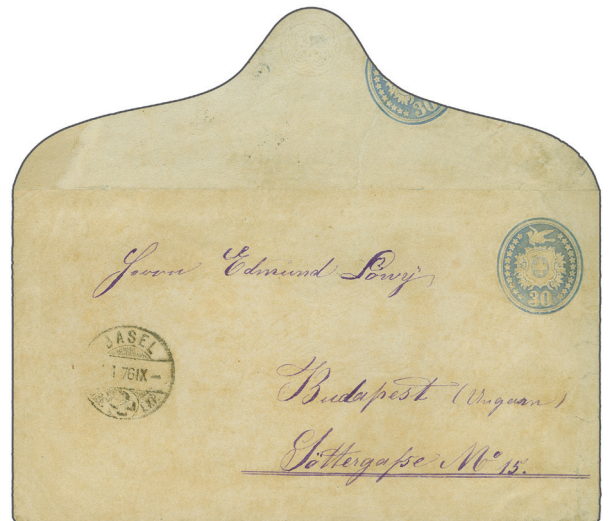 30
Herrn Edmund Löwÿ
30
BASEL
76 IX –
Budapest (Ungarn)
Göttergaſse No 15.